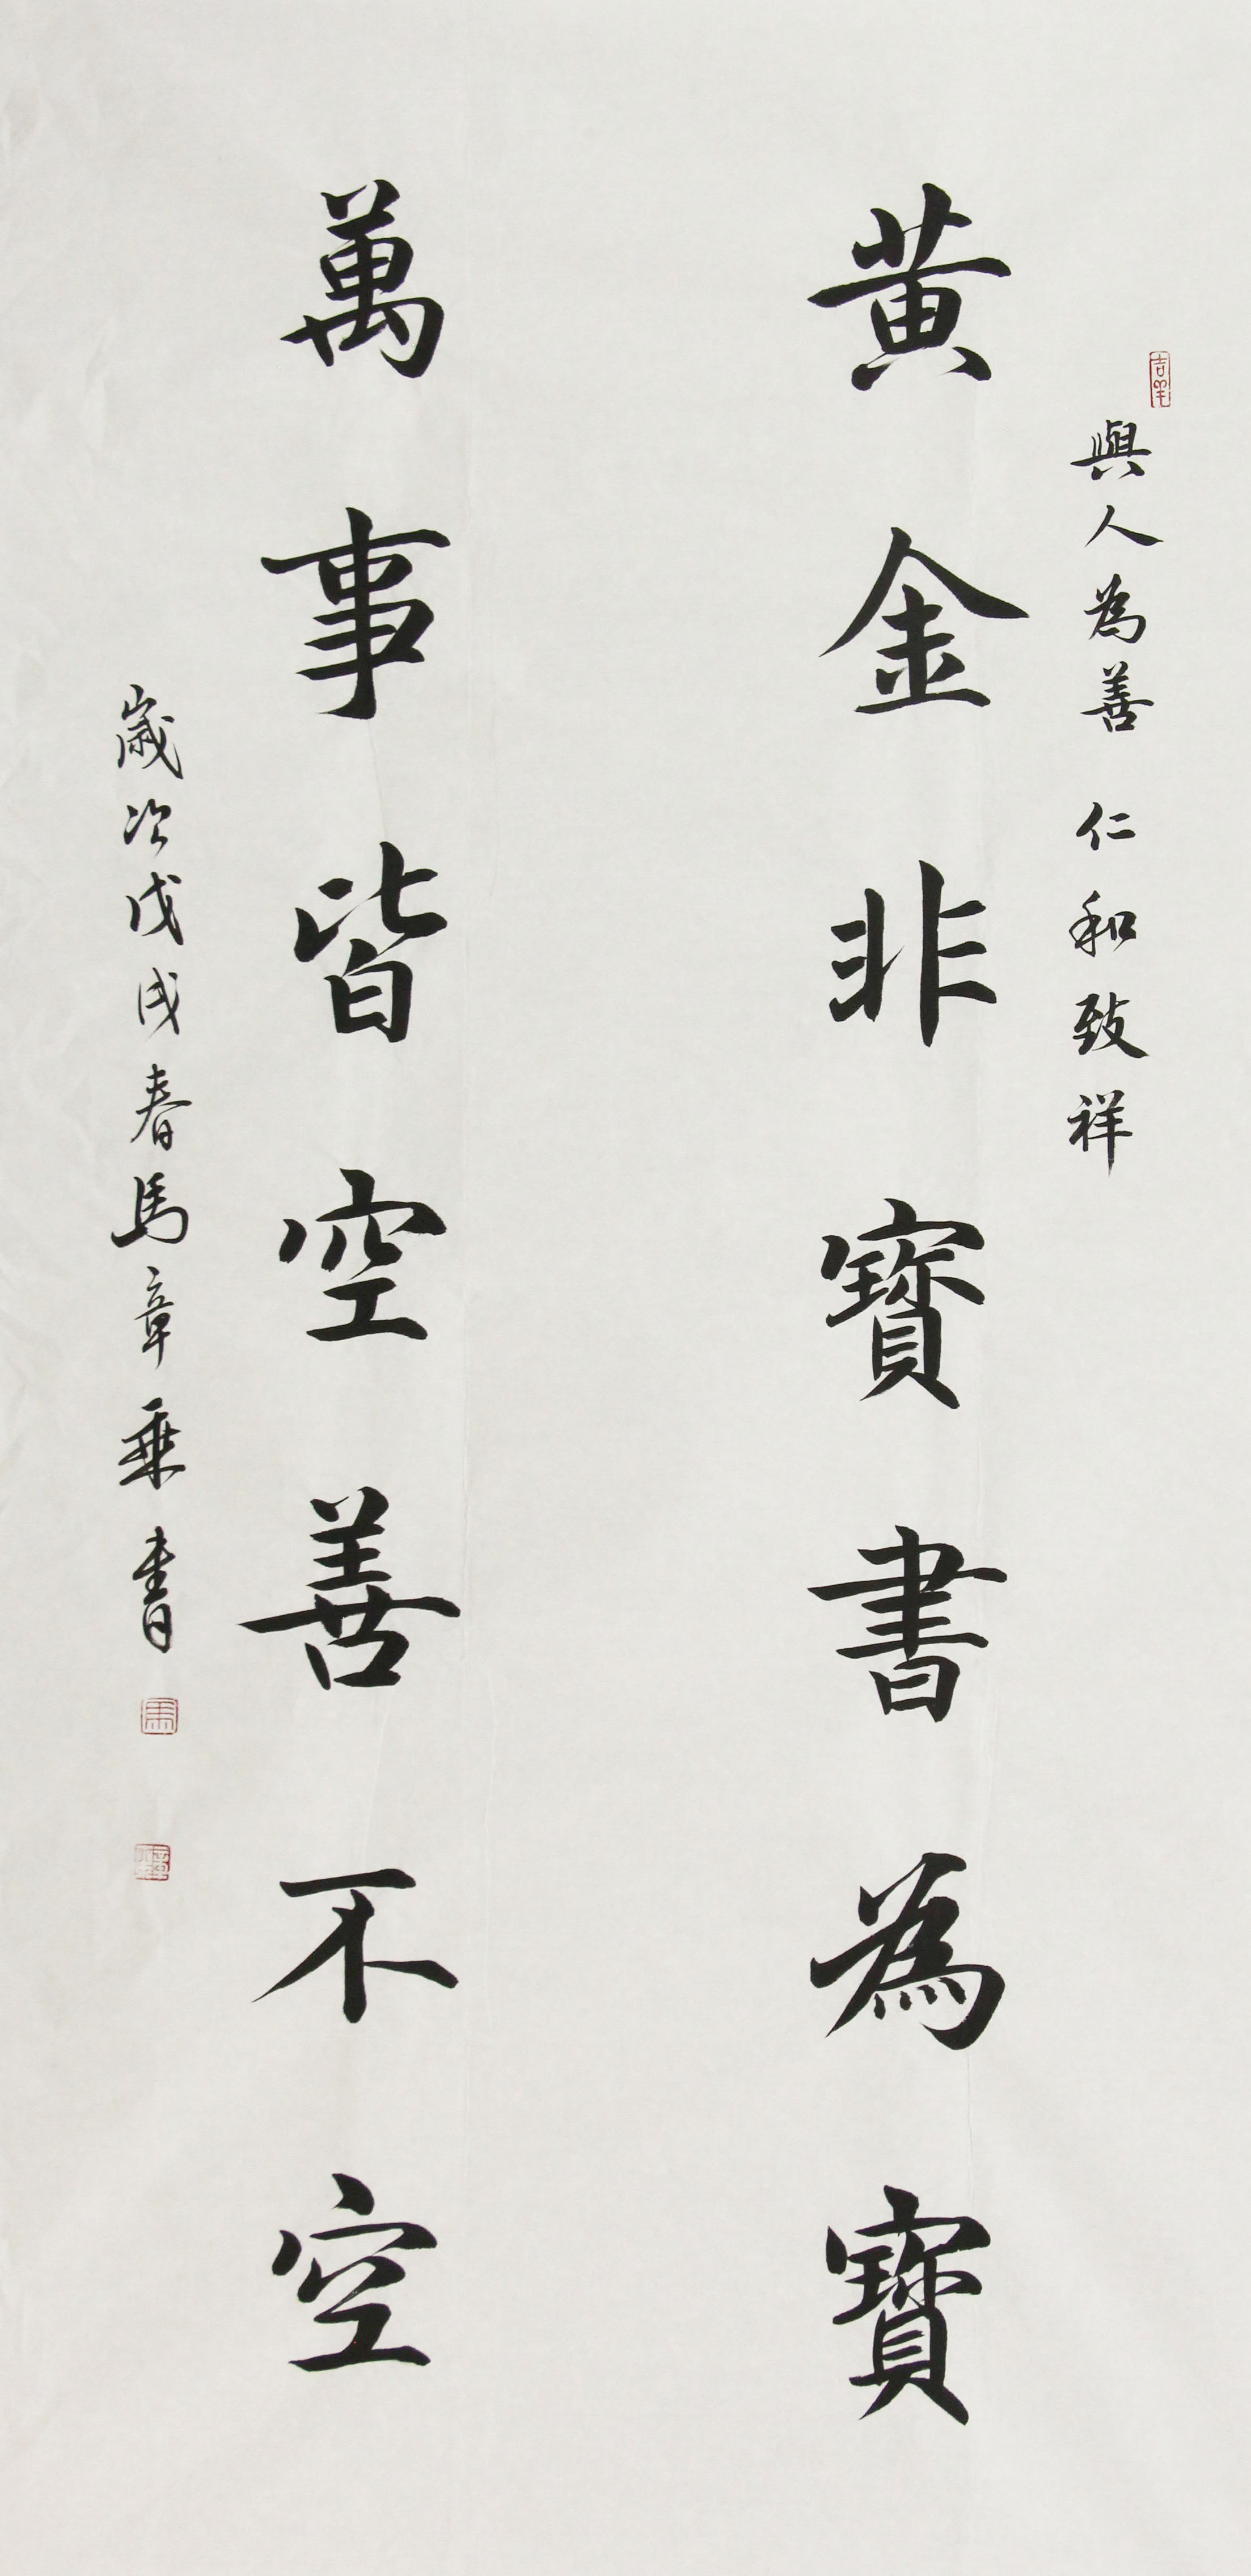 與人為善 仁和致祥
黄金非寶書為寶
萬事皆空善不空
歲次戊戌春馬章乘書